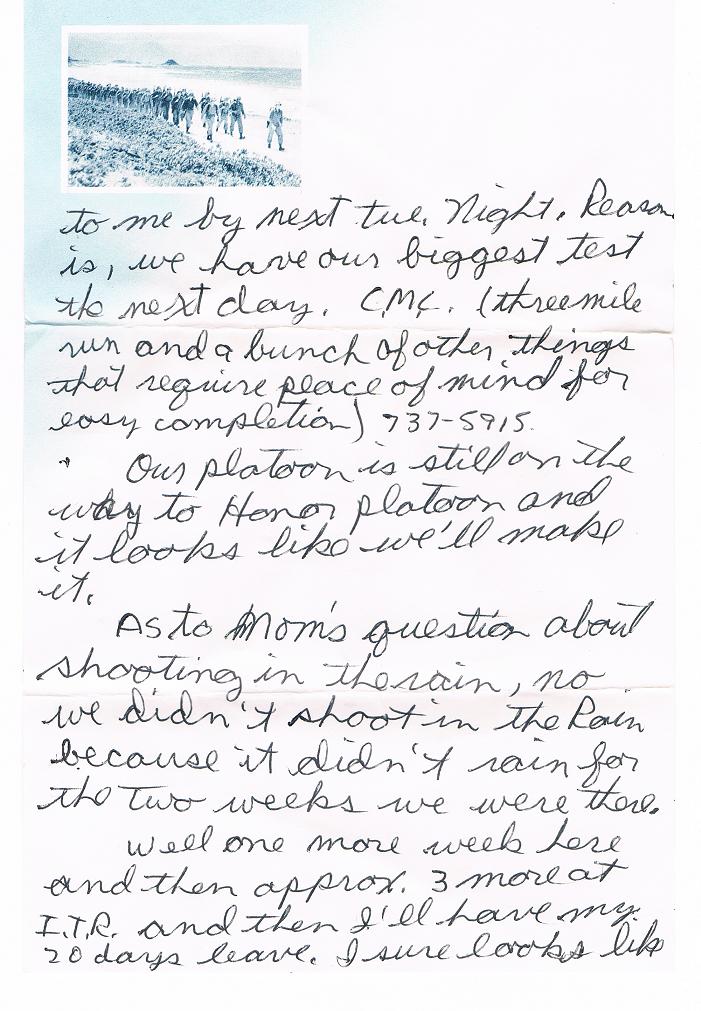 to me by next tue. Night. Reason
is, we have our biggest test
the next day. C.M.C. (three mile
run and a bunch of other things
that require peace of mind for
easy completion) 737-5915.
Our platoon is still on the
way to Honor platoon and
it looks like we'll make
it.
As to Mom's question about
shooting in the rain, no
we didn't shoot in the Rain
because it didn't rain for
the Two weeks we were there.
Well one more week here
and then approx. 3 more at
I.T.R. and then I'll have my
20 days leave. I sure looks like